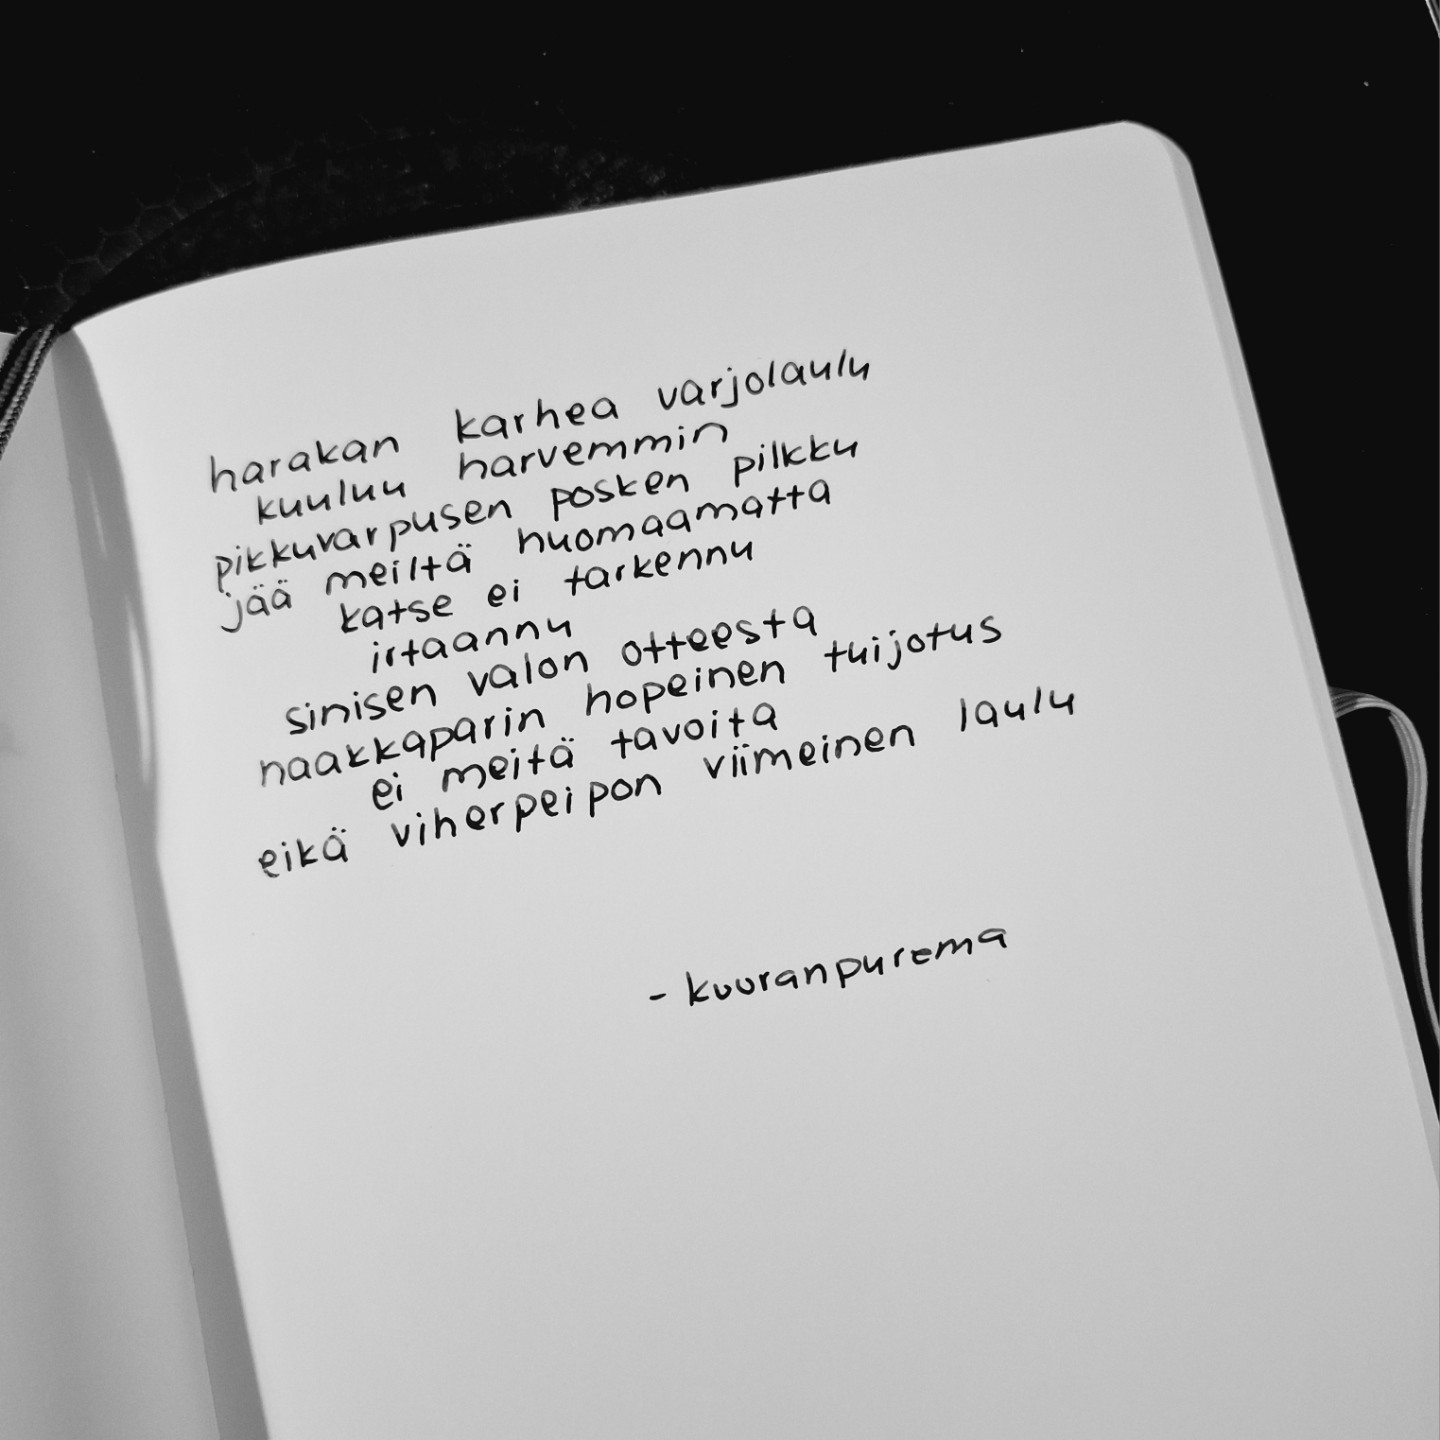 harakan karhea varjolaulu
kuuluu harvemmin
pikkuvarpusen posken pilkku
jää meiltä huomaamatta
katse ei tarkennu
irtaannu
sinisen valon otteesta
naakkaparin hopeinen tuijotus
ei meitä tavoita
eikä viherpeipon viimeinen laulu
- kuuranpurema